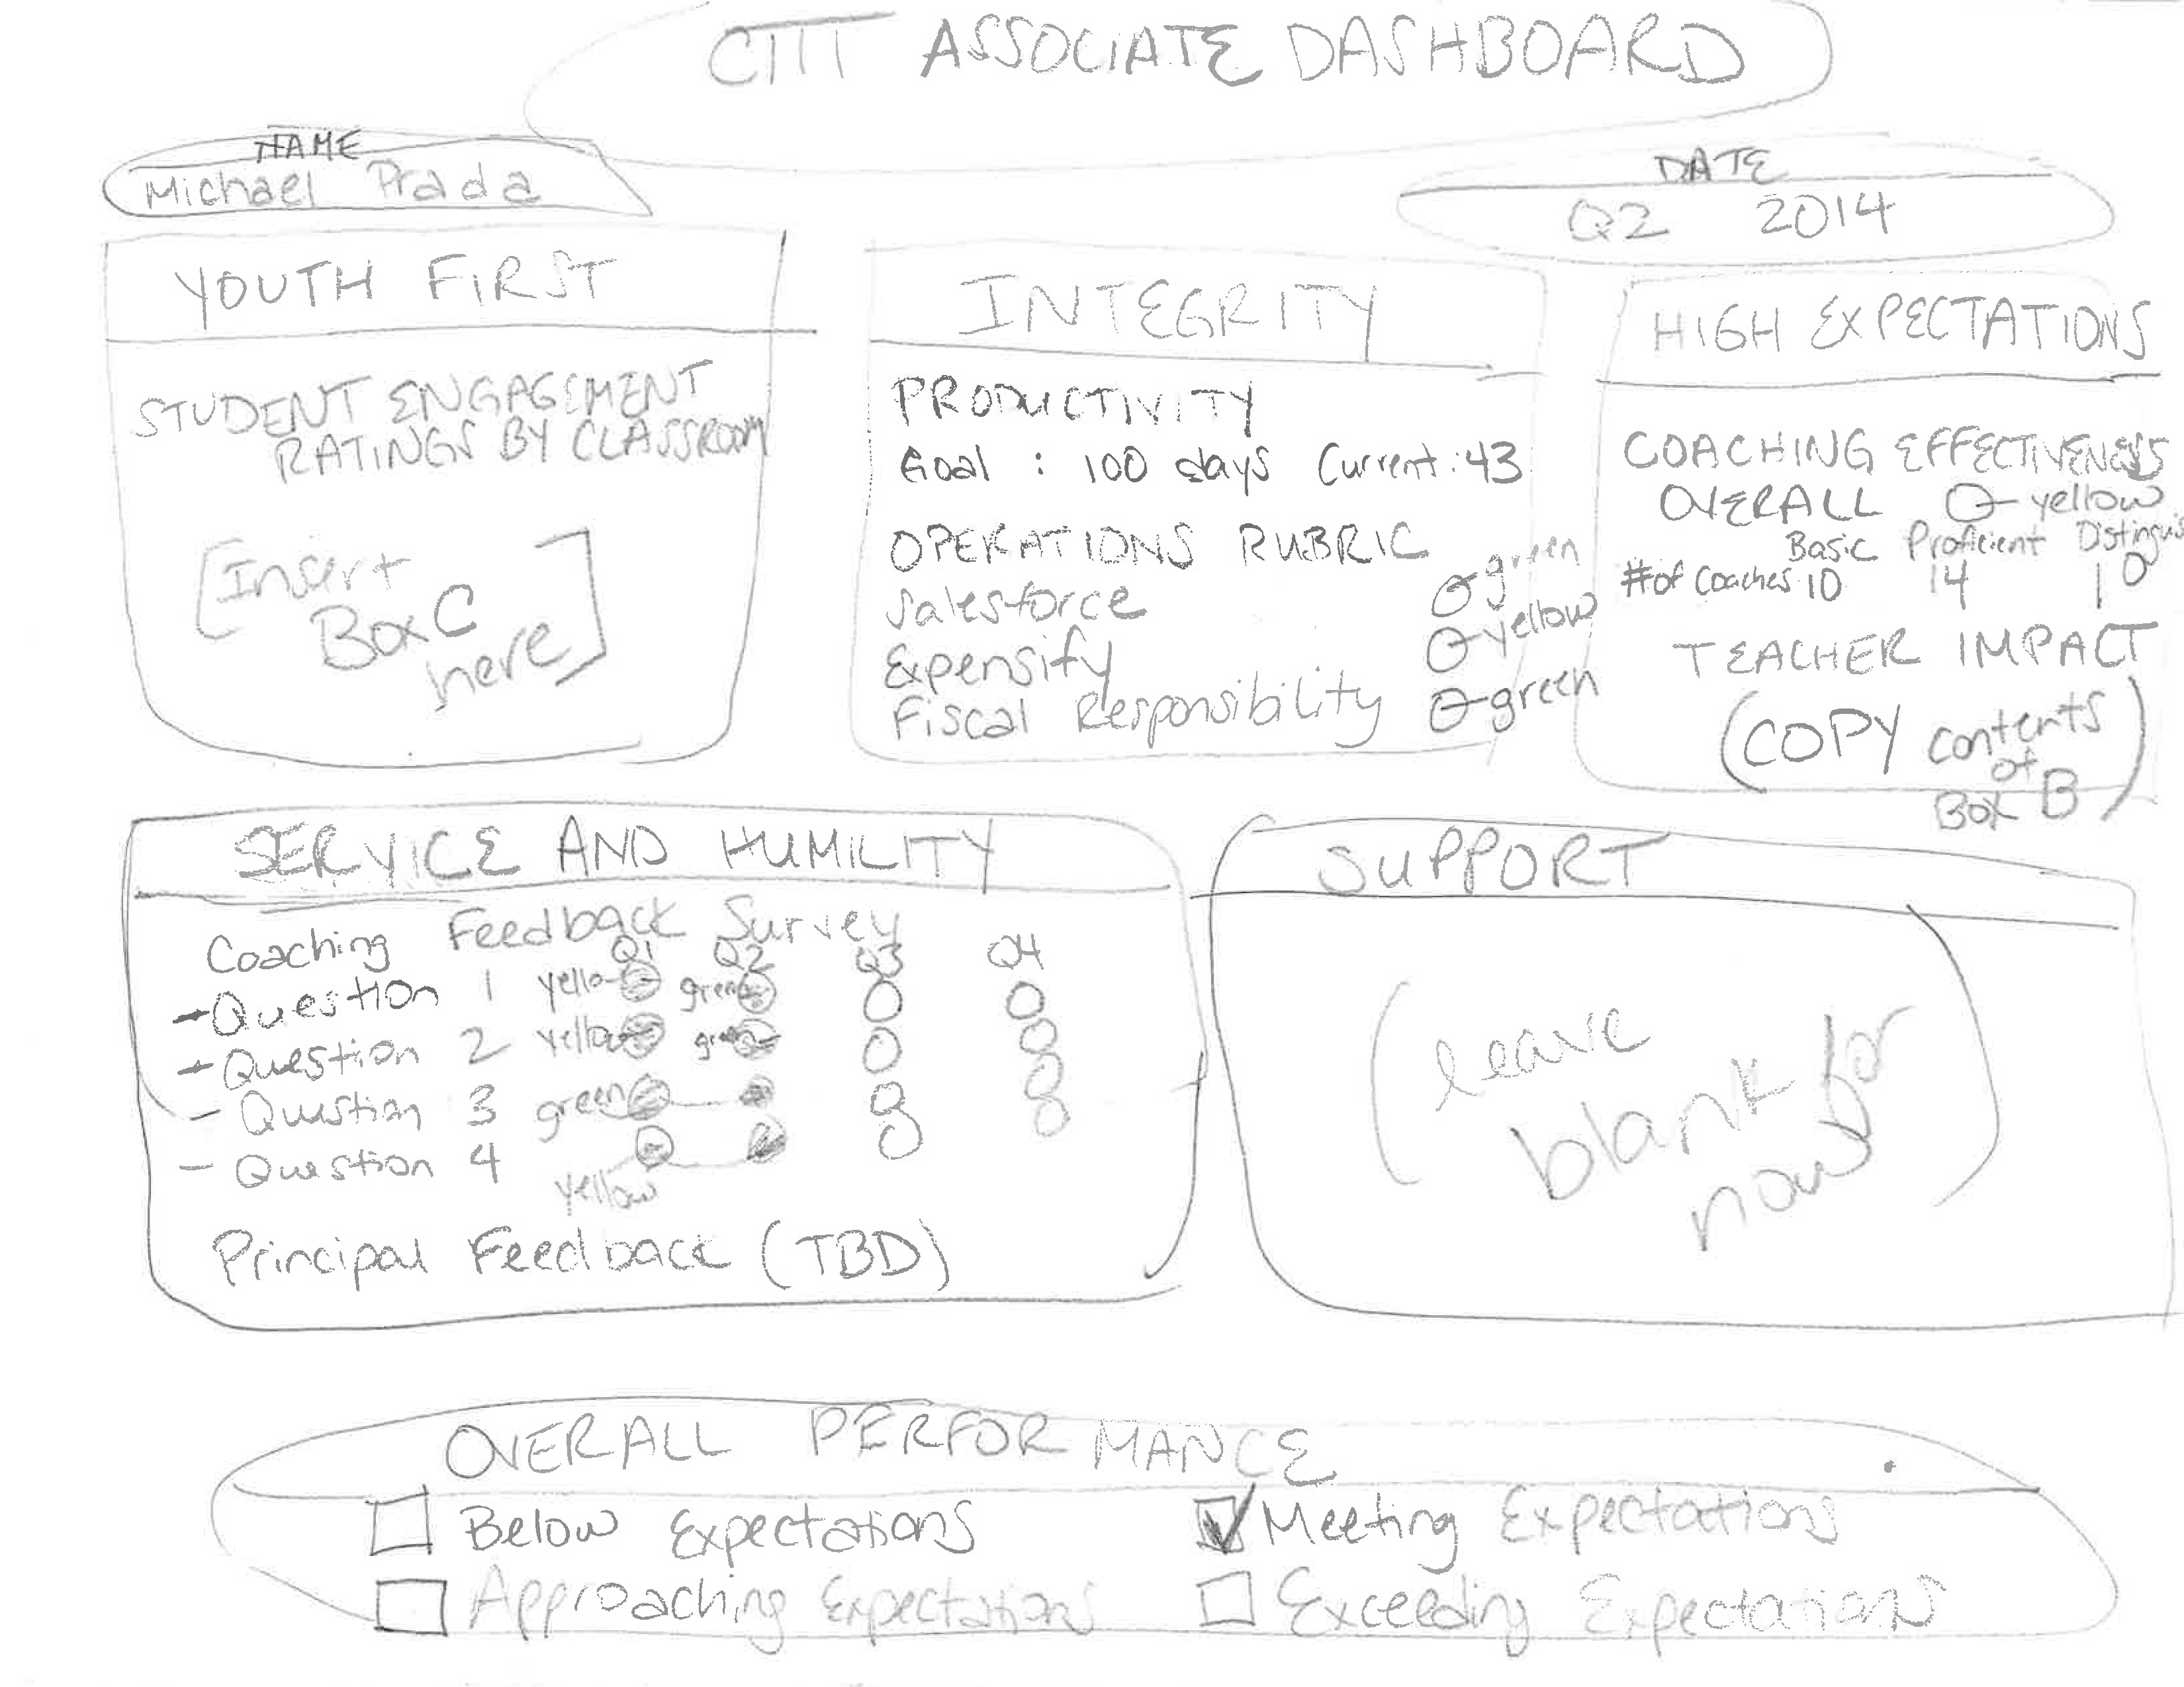 CTTT ASSOCIATE DASHBOARD
NAME
Michael Prada
DATE
Q2 2014
YOUTH FIRST
STUDENT ENGAGEMENT
RATINGS BY CLASSROOM
[Insert
Box C
here]
INTEGRITY
PRODUCTIVITY
Goal : 100 days Current: 43
OPERATIONS RUBRIC
Salesforce green
Expensify yellow
Fiscal Responsibility green
HIGH EXPECTATIONS
COACHING EFFECTIVENESS
OVERALL yellow
Basic Proficient Distinguis
# of Coaches 10 14 10
TEACHER IMPACT
(COPY contents
of
Box B)
SERVICE AND HUMILITY
Coaching Feedback Survey
Q1 Q2 Q3 Q4
- Question 1 yello green
- Question 2 yellow
- Question 3 green
- Question 4
yellow
Principal Feedback (TBD)
SUPPORT
(leave
blank for
now)
OVERALL PERFORMANCE
Below Expectations Meeting Expectations
Approaching Expectations Exceeding Expectations